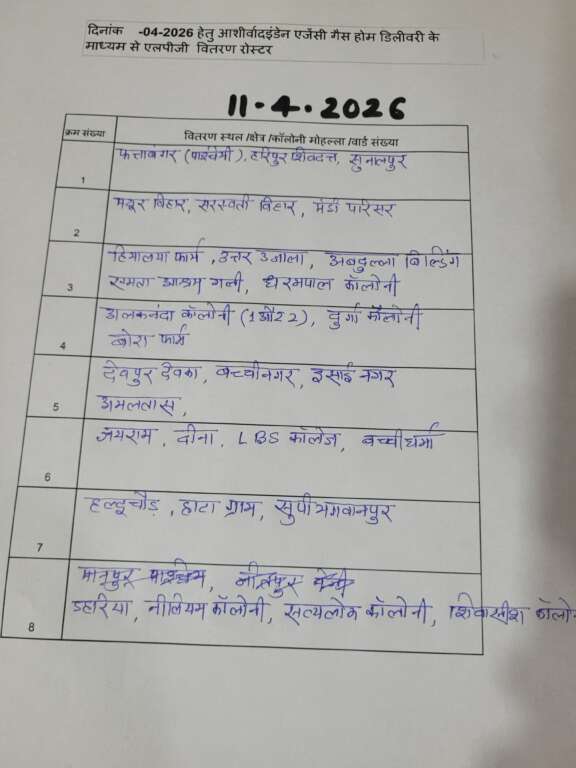 दिनांक -04-2026 हेतु आशीर्वादइंडेन एजेंसी गैस होम डिलीवरी के
माध्यम से एलपीजी वितरण रोस्टर
11.4.2026
क्रम संख्या वितरण स्थल /क्षेत्र /कॉलोनी मोहल्ला /वार्ड संख्या
1 फत्ताबंगर (पाईवेगी), हरिपुर शिवदत्त, सुनालपुर
2 मयूर विहार, सरस्वती विहार, मंडी परिसर
3 हिमालया फार्म, उत्तर उजाला, अबदुल्ला बिल्डिंग
समता आश्रम गली, धरमपाल कॉलोनी
4 अलकनंदा कॉलोनी (1 और 2), दुर्गा कॉलोनी
बोरा फार्म
5 देवपुर देवका, बच्चीनगर, इसाई नगर
अमलतास,
6 जयराम, दीना, LBS कॉलेज, बच्चीधर्मा
7 हल्दूचौड़, हाटा ग्राम, सुपीभगवानपुर
8 मानपुर पश्चिम,
डहरिया, नीलियम कॉलोनी, सत्यलोक कॉलोनी, शिवाशीश